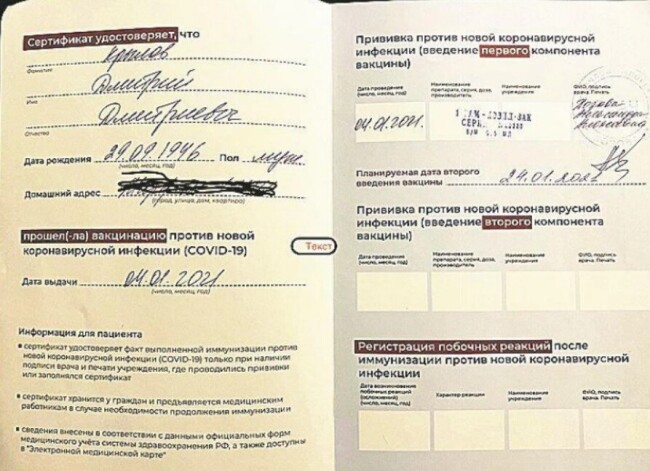 Сертификат удостоверяет, что
Крылов
Фамилия
Дмитрий
Имя
Дмитриевич
Отчество
Дата рождения 29.09.1946 Пол муж
(число, месяц, год)
Домашний адрес
(город, улица, дом, квартира)
прошел(-ла) вакцинацию против новой
коронавирусной инфекции (COVID-19)
Дата выдачи 04.01.2021
(число, месяц, год)
Информация для пациента
▪ сертификат удостоверяет факт выполненной иммунизации против
новой коронавирусной инфекции (COVID-19) только при наличии
подписи врача и печати учреждения, где проводились прививки
или заполнялся сертификат
▪ сертификат хранится у граждан и предъявляется медицинским
работникам в случае необходимости продолжения иммунизации
▪ сведения внесены в соответствии с данными официальных форм
медицинского учёта системы здравоохранения РФ, а также доступны
в "Электронной медицинской карте"
Текст
Прививка против новой коронавирусной
инфекции (введение первого компонента
вакцины)
Дата проведения Наименование Наименование ФИО, подпись
(число, месяц, год) препарата, серия, доза, учреждения врача. Печать
производитель
04.01.2021.
Планируемая дата второго
введения вакцины 24.01.2021
(число, месяц, год)
Прививка против новой коронавирусной
инфекции (введение второго компонента
вакцины)
Дата проведения Наименование Наименование ФИО, подпись
(число, месяц, год) препарата, серия, доза, учреждения врача. Печать
производитель
Регистрация побочных реакций после
иммунизации против новой коронавирусной
инфекции
Дата возникновения Характер реакции Наименование ФИО, подпись
побочных реакций учреждения врача. Печать
(осложнения)
(число, месяц, год)